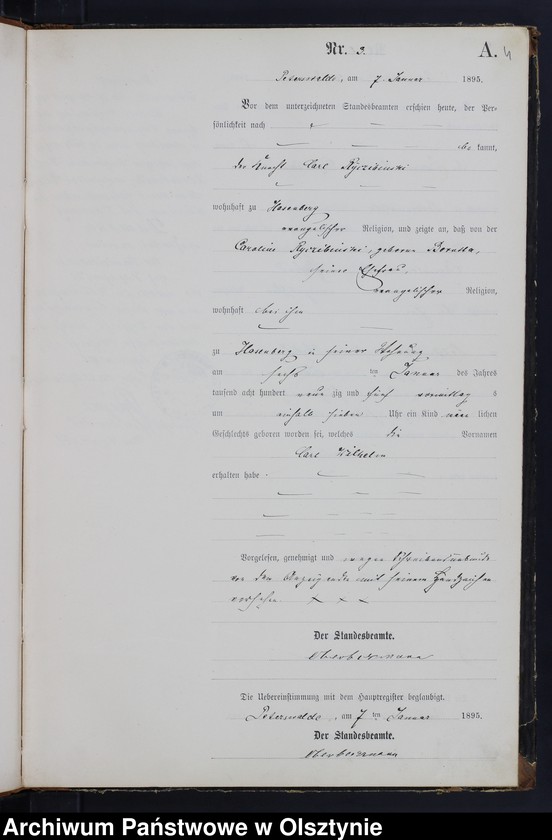 Nr. 3. A. 4
Peterswalde, am 7 Januar 1895.
Vor dem unterzeichneten Standesbeamten erschien heute, der Per-
sönlichkeit nach
be kannt,
der Knecht Carl Ryczibinski
wohnhaft zu Hasenberg
evangelischer Religion, und zeigte an, daß von der
Caroline Ryczibinski, geborne
seiner Ehefrau,
evangelischer Religion,
wohnhaft bei ihm
zu Hasenberg in seiner Wohnung
am sechs ten Januar des Jahres
tausend acht hundert neun zig und fünf vormittag s
um einhalb sieben Uhr ein Kind männ lichen
Geschlechts geboren worden sei, welches die Vornamen
Carl Wilhelm
erhalten habe
Vorgelesen, genehmigt und wegen
von dem Anzeigenden mit seinem Handzeichen
versehen x x x
Der Standesbeamte.
Die Uebereinstimmung mit dem Hauptregister beglaubigt.
Peterswalde, am 7 ten Januar 1895.
Der Standesbeamte.
Archiwum Państwowe w Olsztynie